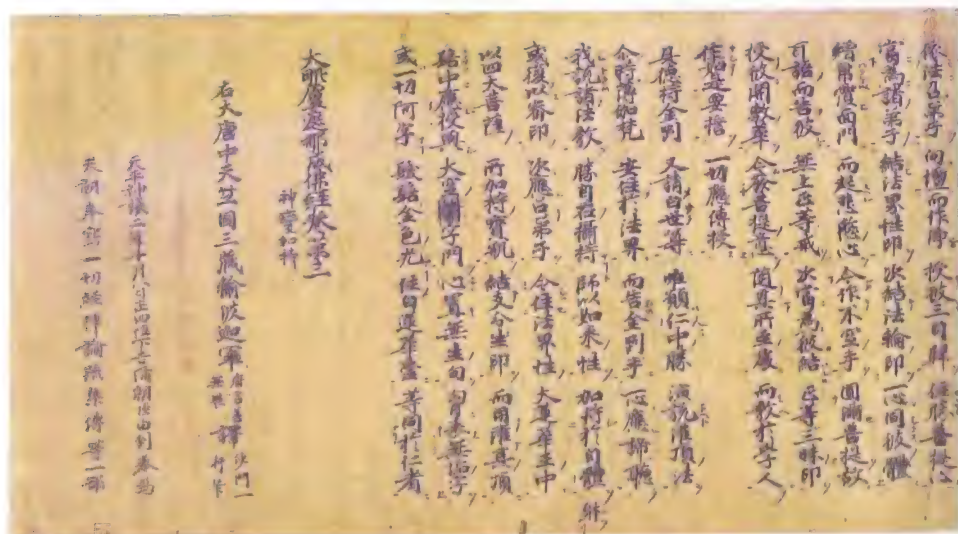 依法召弟子　向壇而作禮　授彼三自歸　住勝菩提心
當為諸弟子　結法界性印　次結法輪印　一心同彼體
繒帛覆面門　而起悲愍心　令作不空手　圓滿菩提故
耳語而告彼　無上正等戒　次當為彼結　正等三昧印
授彼開敷華　令發菩提意　隨其所至處　而教於學人
作如是要誓　一切應傳授
具德持金剛　又請白世尊　唯願仁中勝　演說灌頂法
令時薄伽梵　安住於法界　而告金剛手　一心應諦聽
我說諸法教　勝自在攝持　師以如來性　加持於自體
或復以密印　次應召弟子　令住法界性　大蓮華王中
以四大菩薩　所加持寶瓶　結支分生印　而用灌其頂
髻中應授與　大空闇字門　心置無生句　胸表無垢字
或一切阿字　髮髻金色光　住白蓮華臺　等同於仁者
大毗盧遮那成佛經卷第二
神變加持
右大唐中天竺國三藏輸波迦羅 唐言善無畏 譯 沙門一行筆
天平神護二年十月八日正四位下吉備朝臣由利奉為
天朝奉寫一切經律論疏集傳等一部